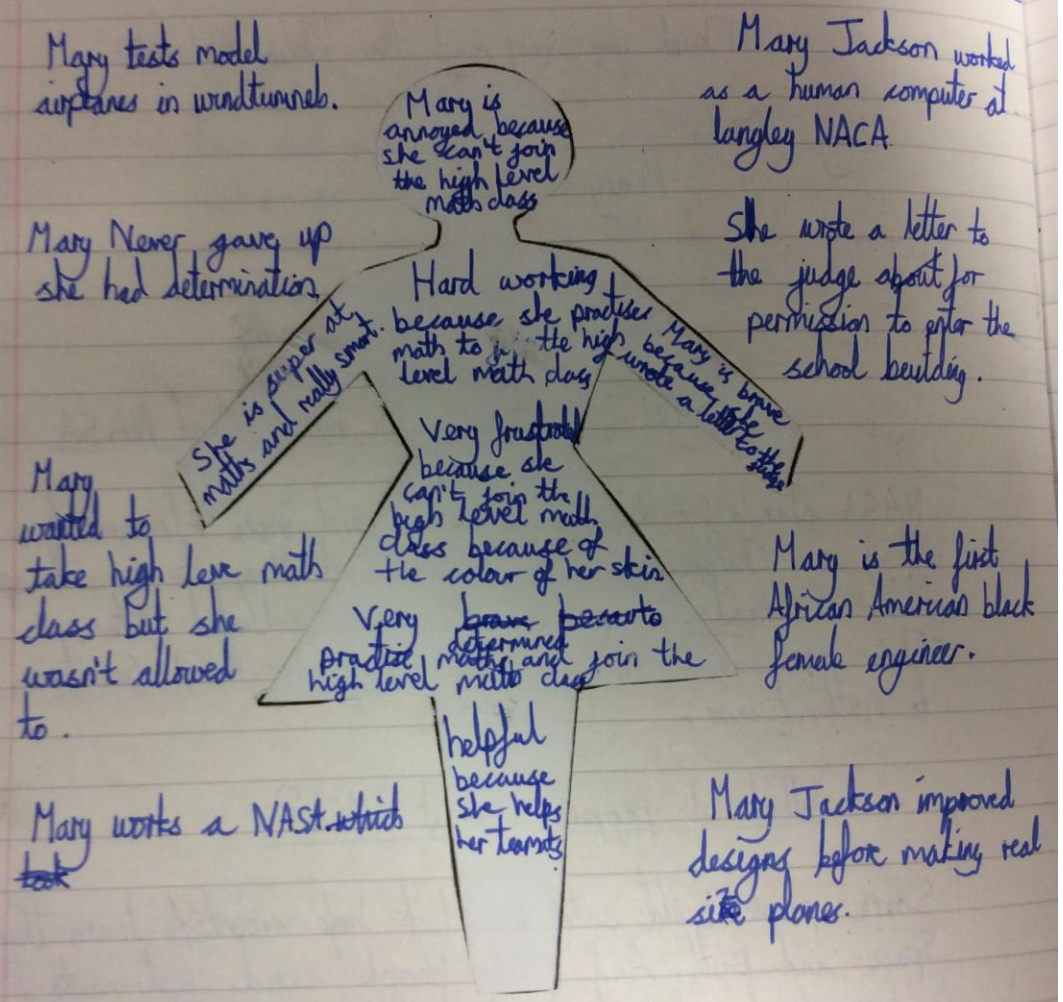 Mary tests model
airplanes in windtunnels.
Mary Never gave up
she had determination
Mary
wanted to
take high leve math
class but she
wasn't allowed
to.
Mary works a NASA which
took
Mary is
annoyed because
she can't join
the high level
maths class
Hard working
because she practises
math to join the high
level math class
She is super at
maths and really smart.
Mary is brave
because she
wrote a letter to the
judge
Very frustrated
because she
can't join the
high level math
class because of
the colour of her skin
Very brave because to
determined
practise maths and join the
high level math class
helpful
because
she helps
her teamats
Mary Jackson worked
as a human computer at
langley NACA
She wrote a letter to
the judge about for
permission to enter the
school beulding.
Mary is the first
African American black
female engineer.
Mary Jackson improved
designs before making real
size planes.